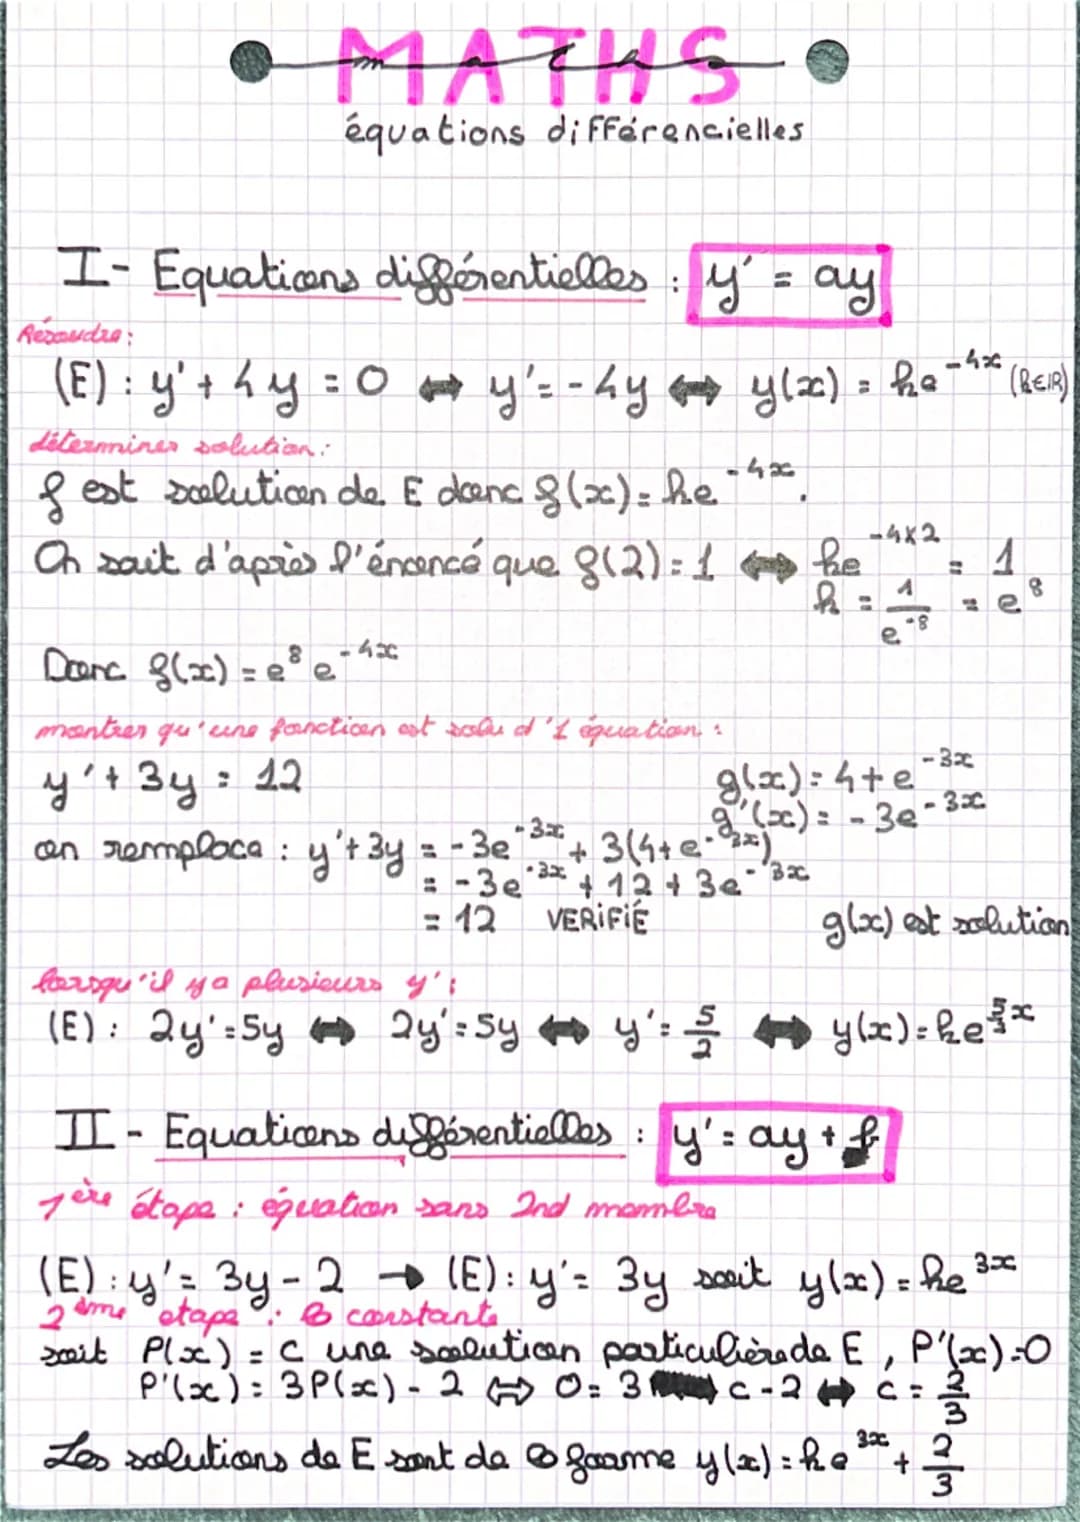 MATHS
maths
équations différencielles
I - Equations différentielles : y' = ay
Résoudre :
(E) : y' + 4y = 0 ⟺ y' = -4y ⟺ y(x) = ke^{-4x} (k∈ℝ)
déterminer solution :
f est solution de E donc f(x) = ke^{-4x}.
On sait d'après l'énoncé que f(2) = 1 ⟺ ke^{-4×2} = 1
k = 1/e^{-8} = e^8
Donc f(x) = e^8 e^{-4x}
montrer qu'une fonction est solu d'1 équation :
y' + 3y = 12 g(x) = 4 + e^{-3x}
g'(x) = -3e^{-3x}
on remplace : y' + 3y = -3e^{-3x} + 3(4 + e^{-3x})
= -3e^{-3x} + 12 + 3e^{-3x}
= 12 VERIFIÉ g(x) est solution
lorsqu'il y a plusieurs y' :
(E) : 2y' = 5y ⟺ 2y' = 5y ⟺ y' = 5/2 ⟺ y(x) = ke^{x}
II - Equations différentielles : y' = ay + b
1ère étape : équation sans 2nd membre
(E) : y' = 3y - 2 → (E) : y' = 3y soit y(x) = ke^{3x}
2ème etape : la constante
soit P(x) = c une solution particulière de E, P'(x) = 0
P'(x) = 3P(x) - 2 ⟺ 0 = 3 c - 2 ⟺ c = 2/3
Les solutions de E sont de la forme y(x) = ke^{3x} + 2/3